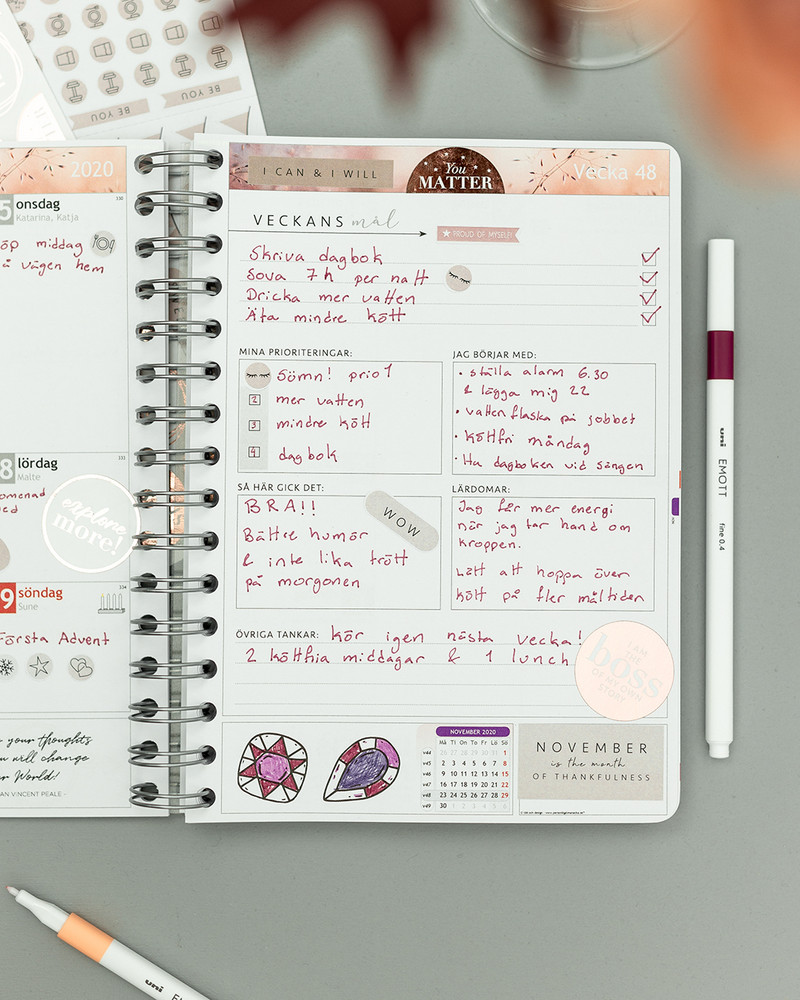 BE YOU
BE YOU
2020
onsdag
Katarina, Katja
330
middag
vägen hem
lördag
Malte
333
explore
more!
söndag
Sune
334
Första Advent
your thoughts
will change
World!
VINCENT PEALE -
I CAN & I WILL
You
MATTER
Vecka 48
VECKANS mål
PROUD OF MYSELF!
Skriva dagbok
Sova 7h per natt
Dricka mer vatten
Äta mindre kött
MINA PRIORITERINGAR:
Sömn! prio 1
2 mer vatten
3 mindre kött
4 dagbok
JAG BÖRJAR MED:
• ställa alarm 6.30
& lägga mig 22
• vattenflaska på jobbet
• köttfri måndag
• Ha dagboken vid sängen
SÅ HÄR GICK DET:
BRA!!
WOW
Bättre humör
& inte lika trött
på morgonen
LÄRDOMAR:
Jag får mer energi
när jag tar hand om
kroppen.
Lätt att hoppa över
kött på fler måltider
ÖVRIGA TANKAR: kör igen nästa vecka!
2 köttfria middagar & 1 lunch
I AM
THE
boss
OF MY OWN
STORY
NOVEMBER 2020
Må Ti On To Fr Lö Sö
v44 26 27 28 29 30 31 1
v45 2 3 4 5 6 7 8
v46 9 10 11 12 13 14 15
v47 16 17 18 19 20 21 22
v48 23 24 25 26 27 28 29
v49 30 1 2 3 4 5 6
NOVEMBER
is the month
OF THANKFULNESS
uni EMOTT fine 0.4
uni